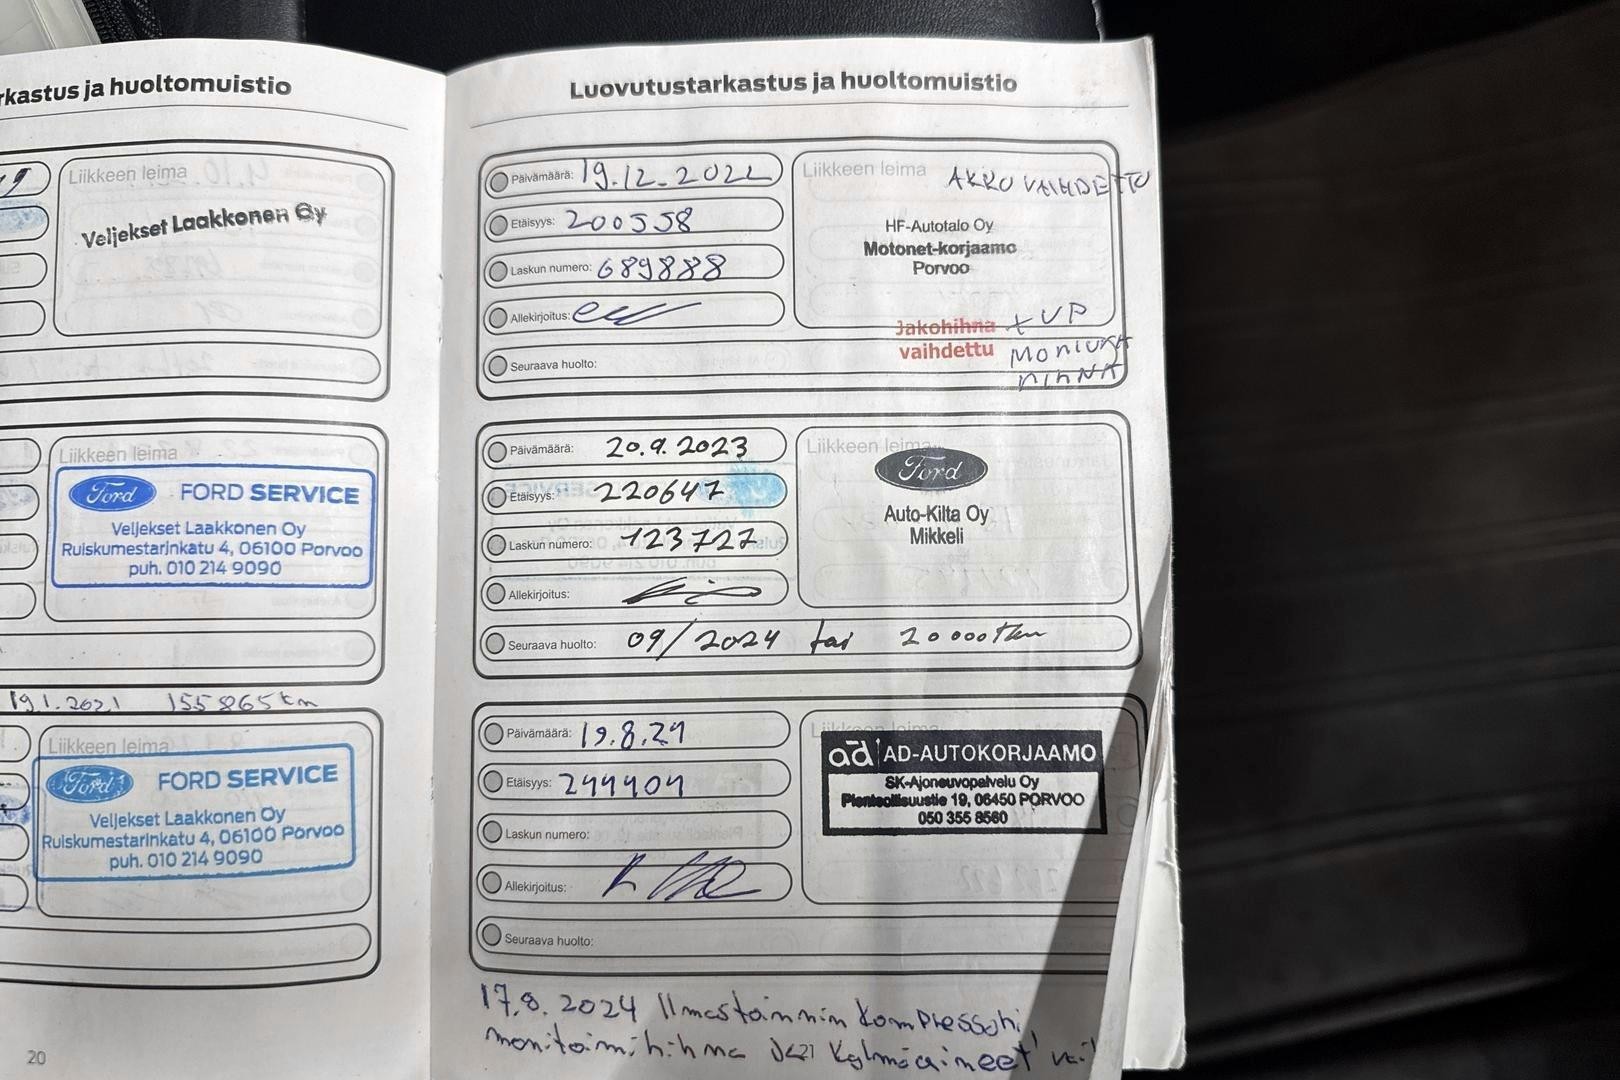 rkastus ja huoltomuistio
Liikkeen leima
Veljekset Laakkonen Oy
Liikkeen leima
Ford FORD SERVICE
Veljekset Laakkonen Oy
Ruiskumestarinkatu 4, 06100 Porvoo
puh. 010 214 9090
19.1.2021 155865 km
Liikkeen leima
Ford FORD SERVICE
Veljekset Laakkonen Oy
Ruiskumestarinkatu 4, 06100 Porvoo
puh. 010 214 9090
20
Luovutustarkastus ja huoltomuistio
Päivämäärä: 19.12.2022
Etäisyys: 200558
Laskun numero: 689888
Allekirjoitus:
Seuraava huolto:
Liikkeen leima AKKU VAIHDETTU
HF-Autotalo Oy
Motonet-korjaamo
Porvoo
Jakohihna + VP
vaihdettu MONIURA
HIHNA
Päivämäärä: 20.9.2023
Etäisyys: 220647
Laskun numero: 123727
Allekirjoitus:
Seuraava huolto: 09/2024 tai 20000tkm
Liikkeen leima
Ford
Auto-Kilta Oy
Mikkeli
Päivämäärä: 19.8.24
Etäisyys: 244404
Laskun numero:
Allekirjoitus:
Seuraava huolto:
Liikkeen leima
ad AD-AUTOKORJAAMO
SK-Ajoneuvopalvelu Oy
Pienteollisuustie 19, 06450 PORVOO
050 355 8560
17.8.2024 Ilmastoinnin kompressori
monitoimihihna ja kylmäaineet